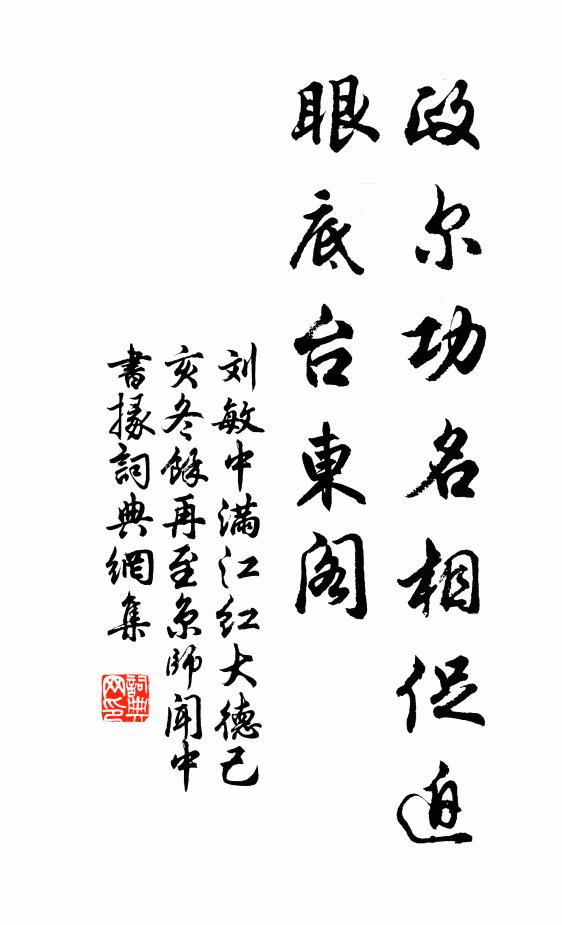 政尔功名相促迫
眼底台東阁
刘敏中满江红大德己
亥冬餘再至京師闻中
書掾詞典網集
詞典网印